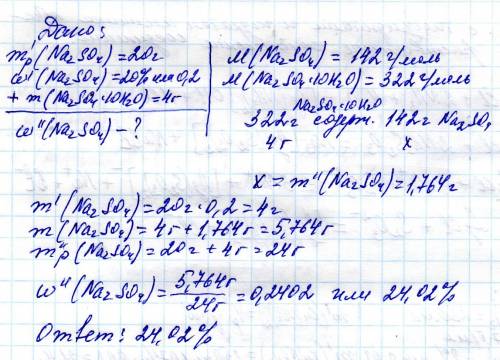 Дано:
m'р(Na₂SO₄) = 20г
ω'(Na₂SO₄) = 20% или 0,2
+ m(Na₂SO₄·10H₂O) = 4г
ω''(Na₂SO₄) - ?
M(Na₂SO₄) = 142 г/моль
M(Na₂SO₄·10H₂O) = 322 г/моль
Na₂SO₄·10H₂O
322г содерж. 142г Na₂SO₄
4г x
x = m''(Na₂SO₄) = 1,764г
m'(Na₂SO₄) = 20г·0,2 = 4г
m(Na₂SO₄) = 4г + 1,764г = 5,764г
m''р(Na₂SO₄) = 20г + 4г = 24г
ω''(Na₂SO₄) = 5,764г/24г = 0,2402 или 24,02%
Ответ: 24,02%